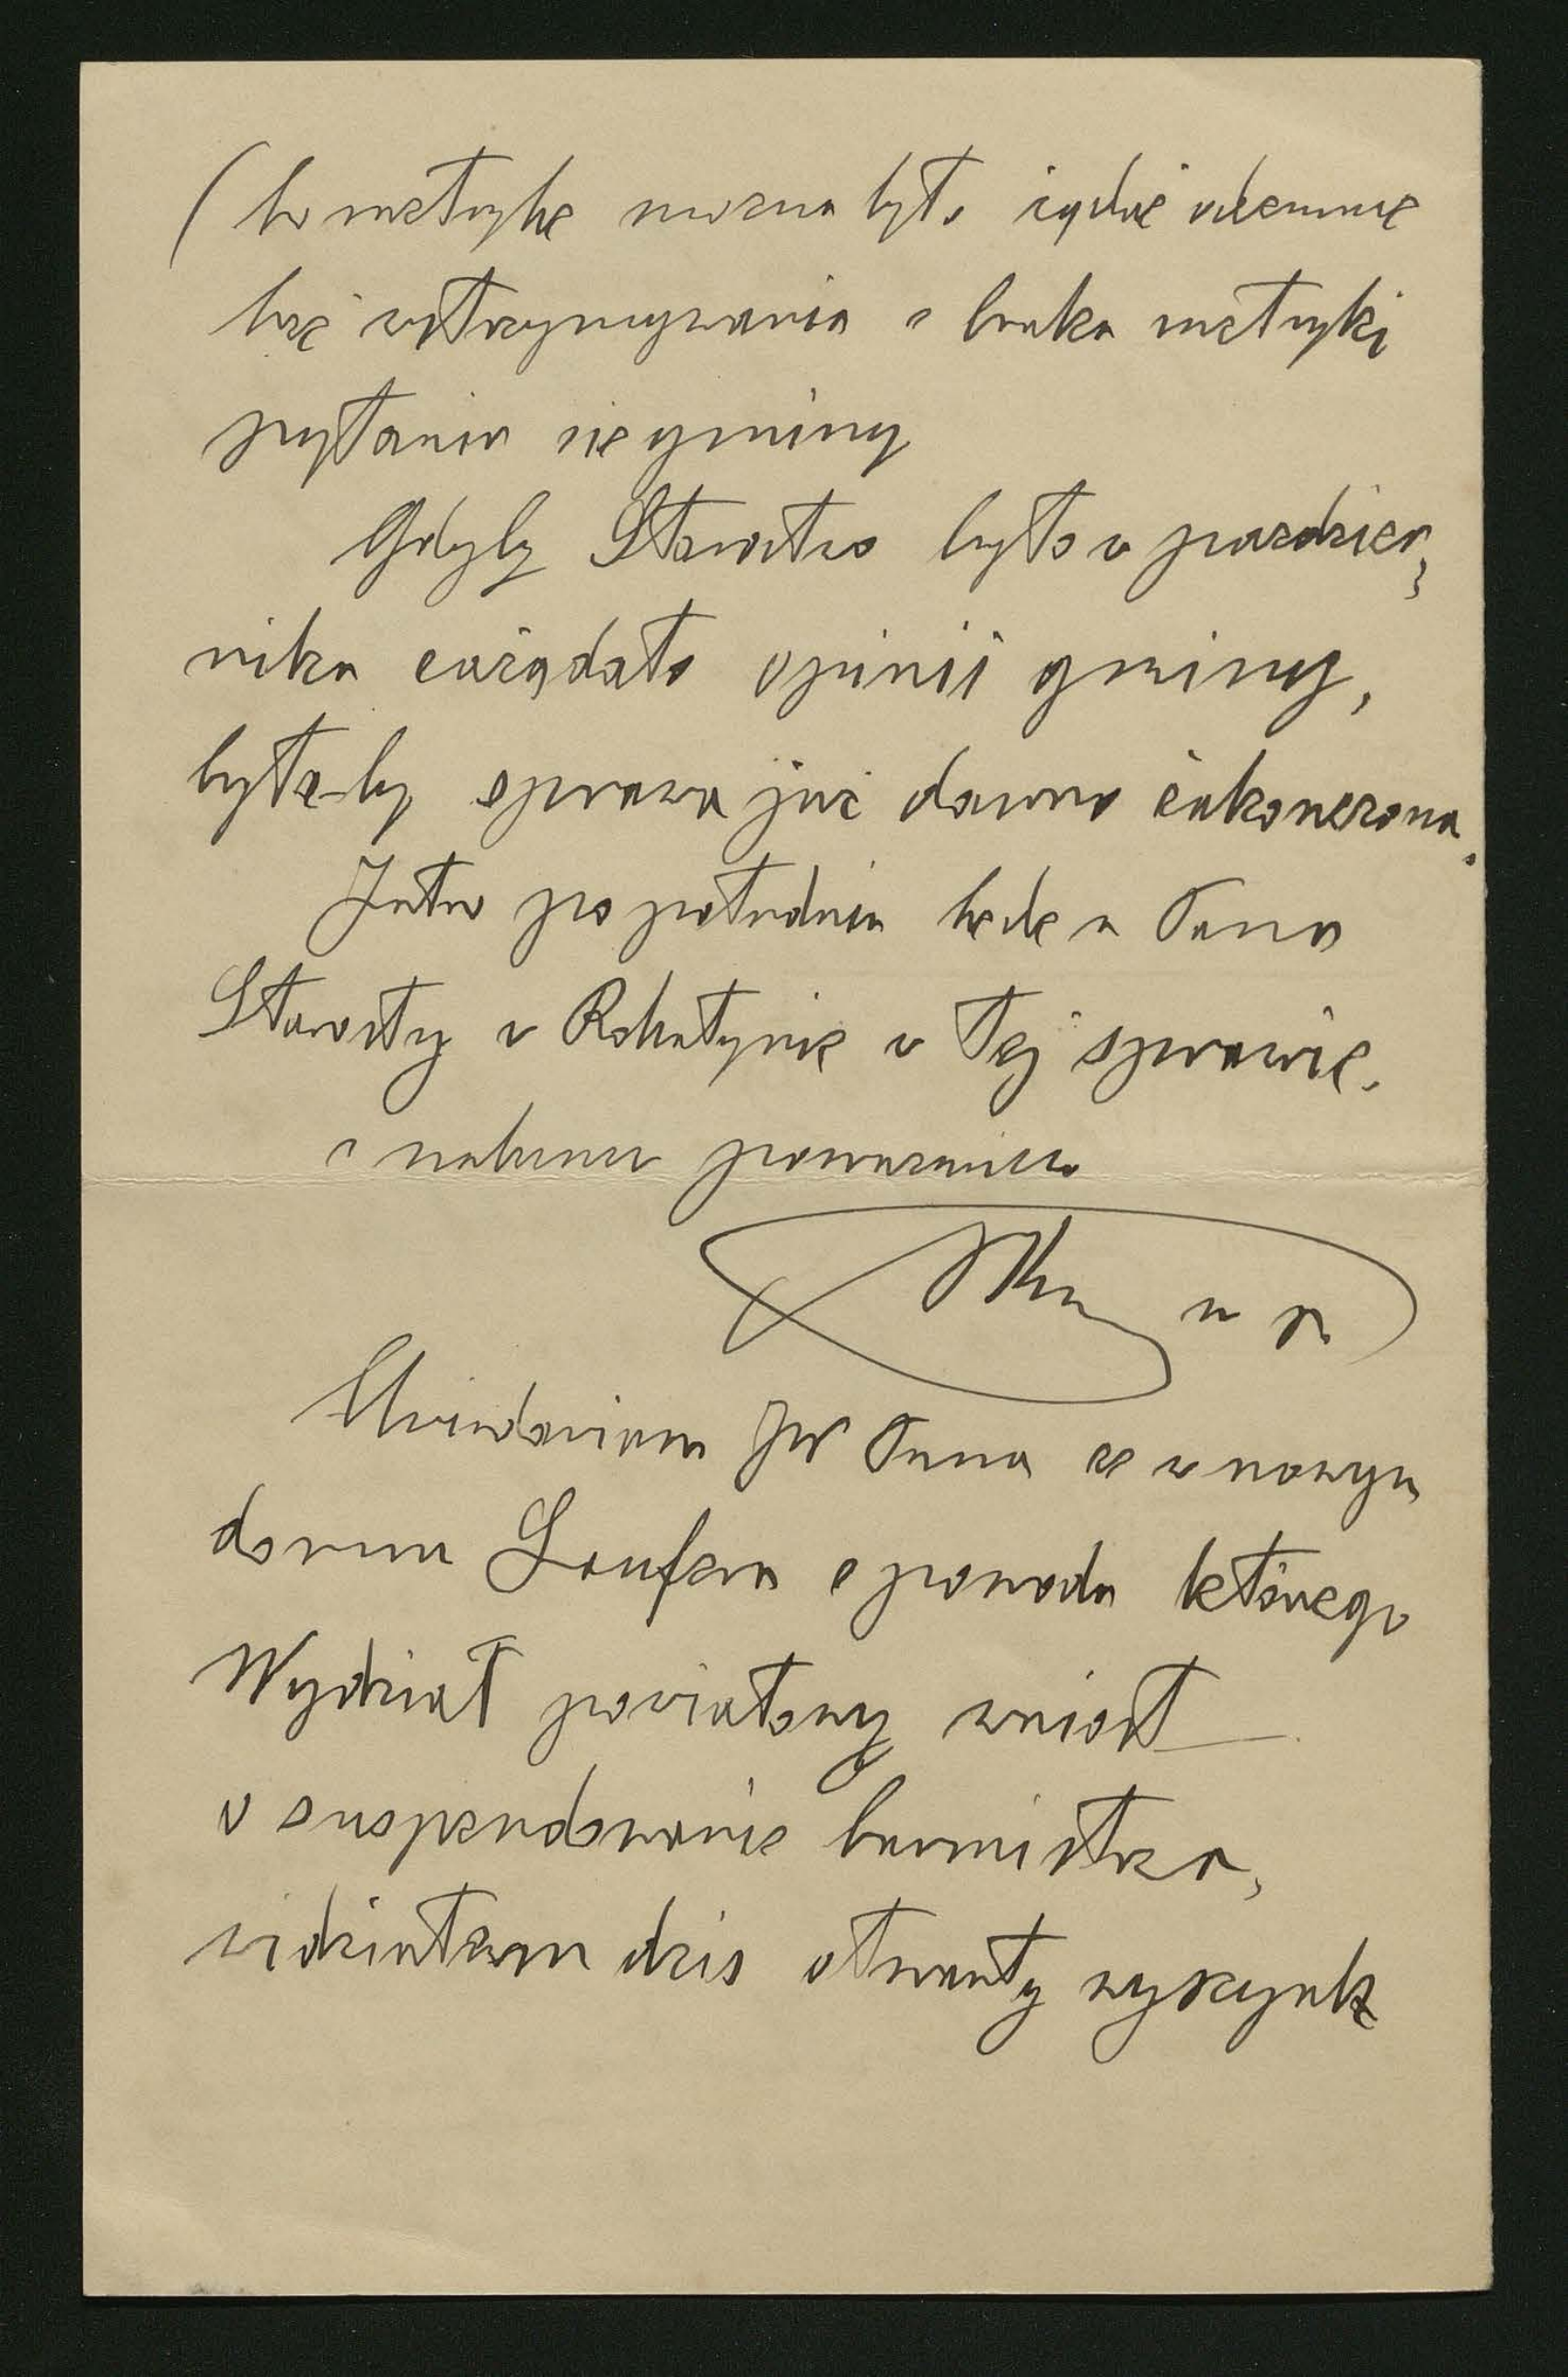 (bo metrykę można było żądać odemnie
bez wstrzymywania z braku metryki
pytania się gminy
Gdyby Starostwo było w paździer,
niku zażądało opinii gminy,
byłα-by sprawa już dawno zakończona.
Jutro po południu będę u Pana
Starosty w Rohatynie w tej sprawie.
z poważaniem
Uwiadamiam JW Pana że w nowym
domu Laufera z powodu którego
Wydział powiatowy wniósł
o suspendowanie burmistrza,
widziałem dziś otwarty wyszynk